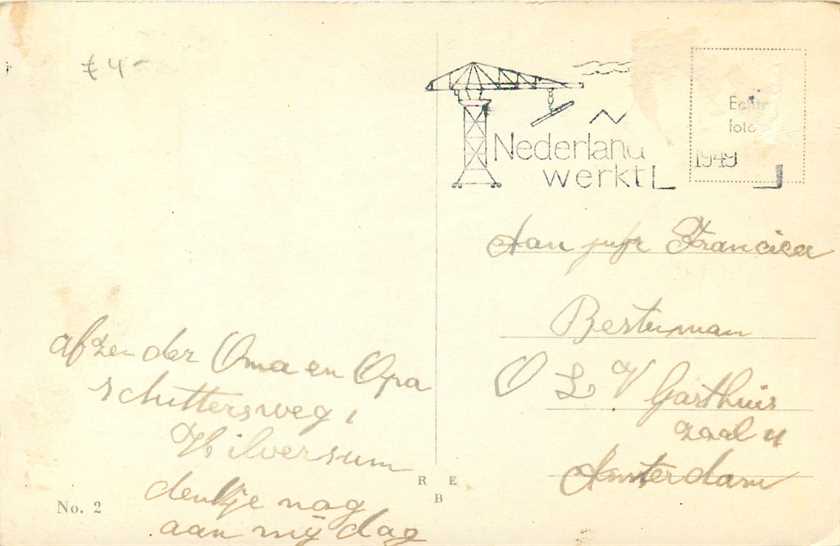 £ 4-
Nederland
werkt
1949
Echte
foto
Aan jufr Francien
Besteman
O L V Gasthuis
zaal 4
Amsterdam
afzender Oma en Opa
schuttersweg 1
Hilversum
denkje nog
aan mij dag
R E
B
No. 2